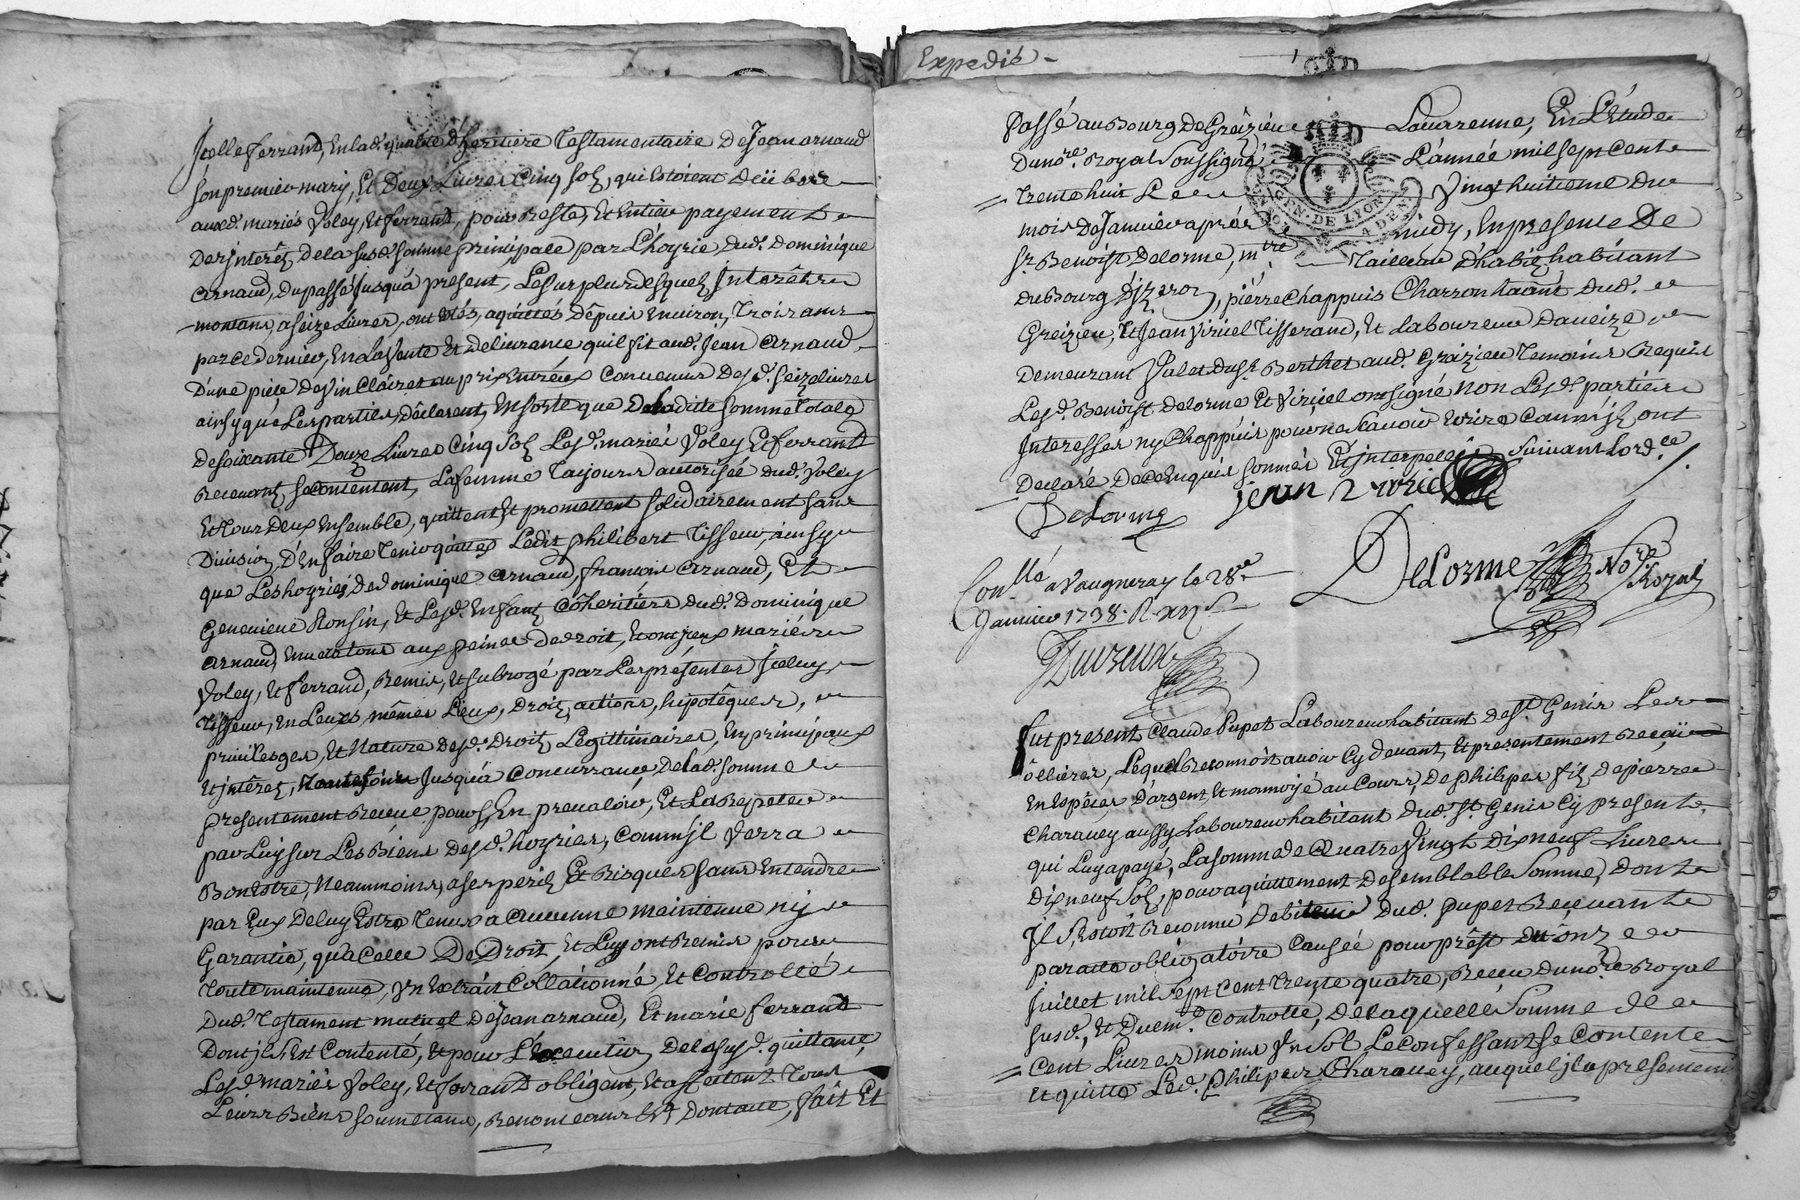 Icelle ferrand, En lad. qualité d'heritiere Testamentaire De Jean arnaud
son premier mary, Et Deux Livres Cinq sols, qui Estoient deüs
auxd. mariés Voley, Et ferrand, pour Reste, Et Entier payement
Des jnterêts De la susd. somme principale par L'hoyrie dud. Dominique
arnaud, du passé jusqu'à present, Le surplus desquels Interêts
montans, a seize Livres, ont Estés, aquittés dêpuis Environ, Trois ans
par ce dernier, En La Vente Et delivrance quil fit aud. Jean arnaud
D'une piéce de Vin Clairet au prix Entréeux Convenus Desd. seize livres
ainsy que Les parties, Dêclarent, En sorte que De Laditte somme Totale
de soixante Douze Livres Cinq sols Lesd. mariés Voley Et ferrand
Recevant, se Contentent, La femme Toujours autorisée dud. Voley
Et Tous Deux Ensemble, quittent Et promettent solidairement sans
Division, D'En faire Tenir quitte Ledit philibert Tisseur, ainsy
que Les hoyries de dominique arnaud, francois arnaud, Et
Genevieve Ronsin, Et Lesd. Enfants Cohéritiers dud. Dominique
arnaud, Envers tous aux peines de droit, Et ont jceux mariés
Voley, Et ferrand, Remis, Et subrogé par Les présentes Jceluy
Tisseur, En Leurs mêmes Lieux, droits, actions, hipotêques,
privileges, Et Nature desd. Droits Legittimaires, En principaux
Et jntêrets, Jusqu'à Concurrance, De Lad. somme
presentement Receue pour s'En prevaloir, Et La Repeter
par Luy sur Les Biens desd. hoyries, Comm'jl Verra
Bon Estre, Neanmoins, a ses perils Et Risques sans Entendre
par Eux De Luy Estre Tenus a aucunne maintenue ny
Garantie, qu'à Celle De Droit, Et Luy ont Remis pour
Toute maintenue, Vn Extrait Collationné, Et Controllé
Dud. Testament mutuel de Jean arnaud, Et marie ferrand
Dont jl s'Est Contenté, Et pour L'éxecution De La susd. quittance,
Lesd. mariés Voley, Et ferrand obligent, Et affectent Tous
Leurs Biens soumetans, Renonceans Et Dont acte, fait Et
Expedié
Passé au Bourg De Greizieu Lavarenne, En L'Etude
Du nore. Royal soussigné L'année mil sept cent
Trente huit Le Vingt huitieme du
mois de Janvier aprés midy, En presence De
sr. Benoist Delorme, mtre. Tailleur d'habits habitant
du Bourg d'jzeron, pierre Chappuis Charron haänt dud.
Greizieu, Et Jean Viriel Tisserand, Et Laboureur Daveize,
Demeurant Valet du sr. Berthet aud. Greizieu Temoins Requis
Lesd. Benoist delorme Et Viriel ont signé non Lesd. parties
Interessées ny Chappuis pour ne sçavoir Ecrire Comm'jls ont
Declaré De ce Enquis sommés Et jnterpelés suivant Lordce.
De Lorme
jean Viriel
DeLorme Nore. Royal
Conllé a Vaugneray le 28e
Janvier 1738. R.
Fut present Claude Pupet Laboureur habitant de st. Genis Les
ôllieres, Lequel Reconnoit avoir Cy devant, Et presentement Receü
En Espéces D'argent, Et monnoyé au Cours, De philipes fils de pierre
Charavey aussy Laboureur habitant dud. st. Genis Cy present
qui Luy a payé, La somme de Quatre Vingt Dix neuf Livres
dix neuf sols, pour aquittement De semblable somme, dont
Jl s'Estoit Reconnu Debiteur dud. Pupet Recevant
par acte obligatoire Causée pour prêst du onze
Juillet mil sept cent Trente quatre, Receu du nore. Royal
susd., Et duem. Controllé, De Laquelle somme de
Cent Livres moins Vn sol Le confessant se Contente
Et quitte Led. philipes Charavey, auquel jl a presement
GEN. DE LYON